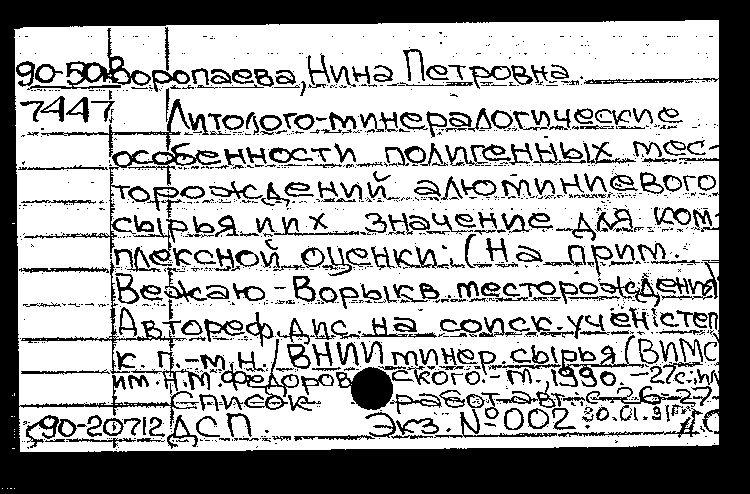 90-50 Воропаева, Нина Петровна.
7447 Литолого-минералогические
особенности полигенных мес-
торождений алюминиевого
сырья и их значение для ком-
плексной оценки: (На прим.
Вежаю-Ворыкв. месторождения)
Автореф. дис. на соиск. учен. степ.
к. г.-м. н. / ВНИИ минер. сырья (ВИМС)
им. Н.М. Федоровского. - М., 1990. - 27 с.
Список работ авт.: с. 26-27
90-20712 ДСП. Экз. № 002. 30.01.91